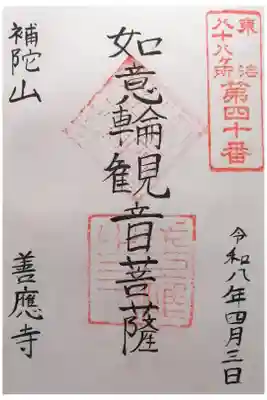 八十八ヶ所
第四十番
如意輪観音菩薩
令和八年四月三日
補陀山
善應寺